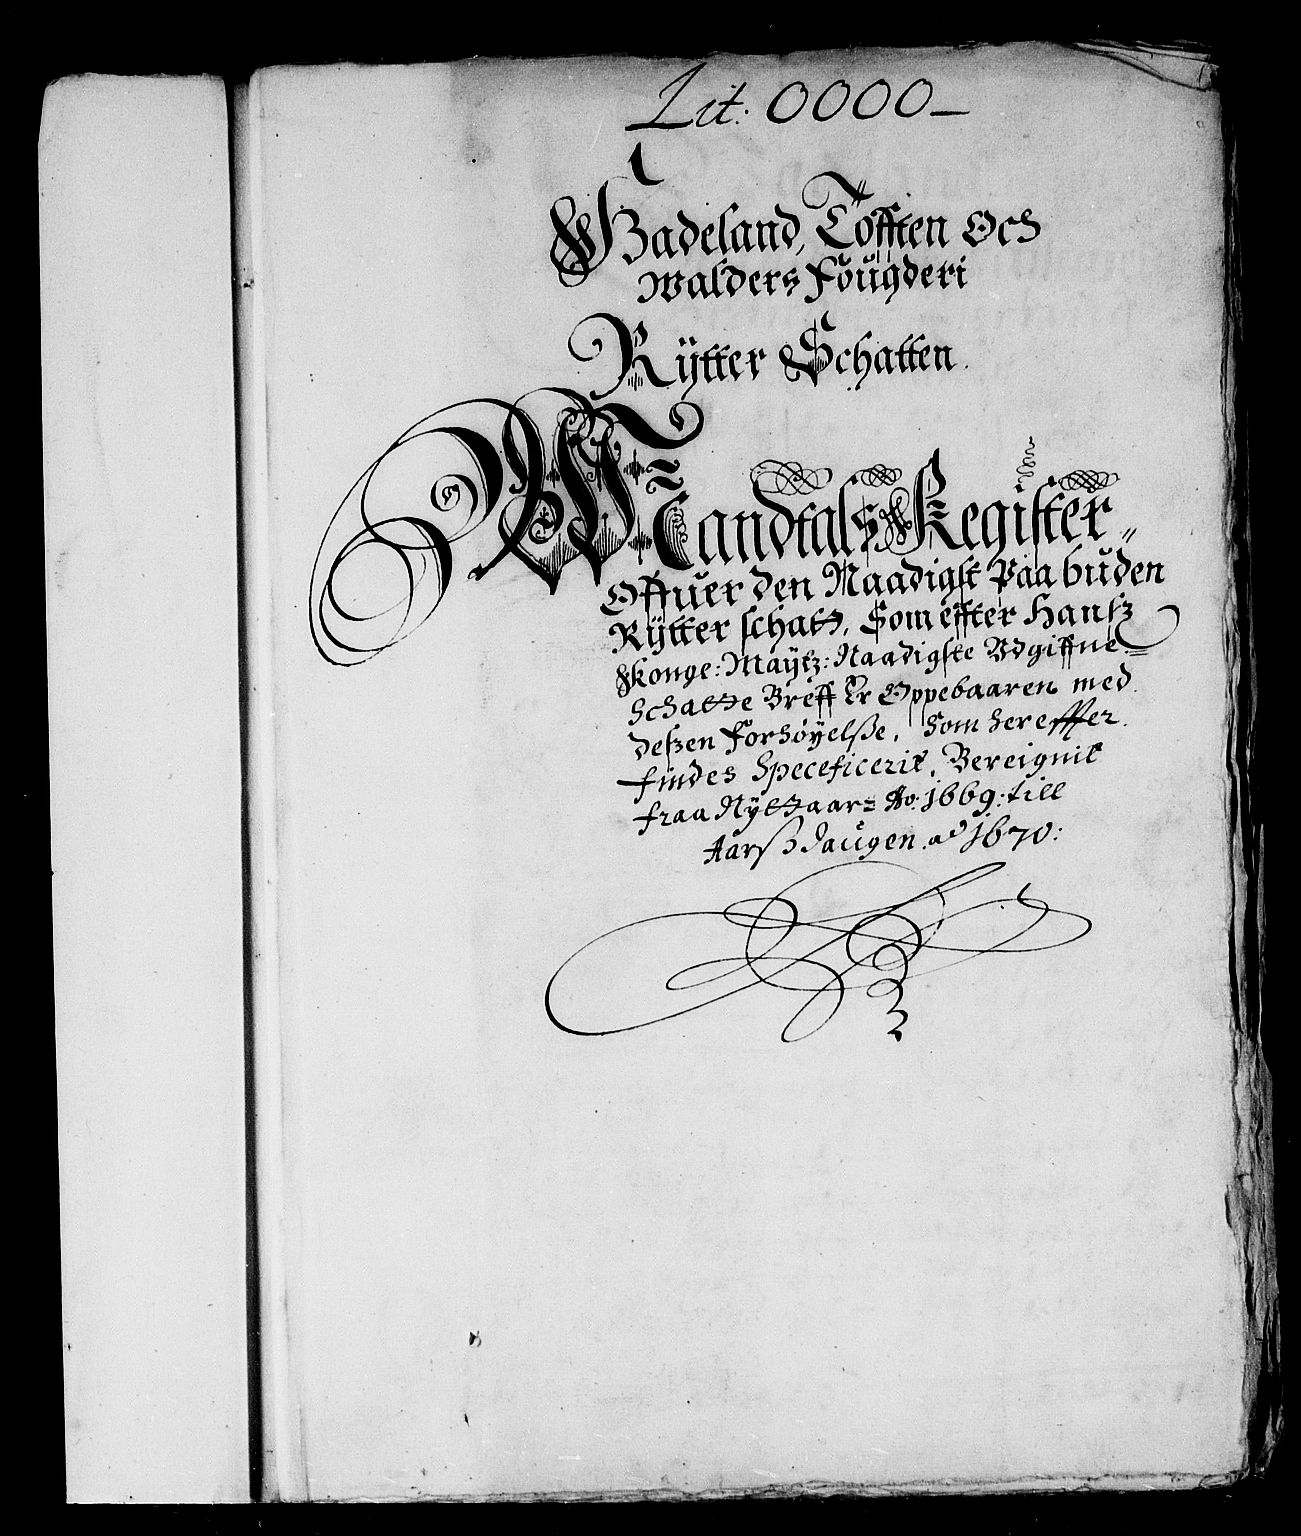 Lit: OOOO
Hadeland, Toften Och
Walders Fougderi
Rÿtter Schatten.
Mandtals Register
Offuer den Naadigst Paabuden
Rÿtter schatt, Som effter Hansz
Konge: Maÿtz: Naadigste Udgiffne
Schatte Breff Er Oppebaaren med
deszen Forhøÿelsze, Som hereffter
findes Speceficerit, Bereignit
fraa Nÿttaar Ao: 1669: till
Aarsz daugen ad 1670: